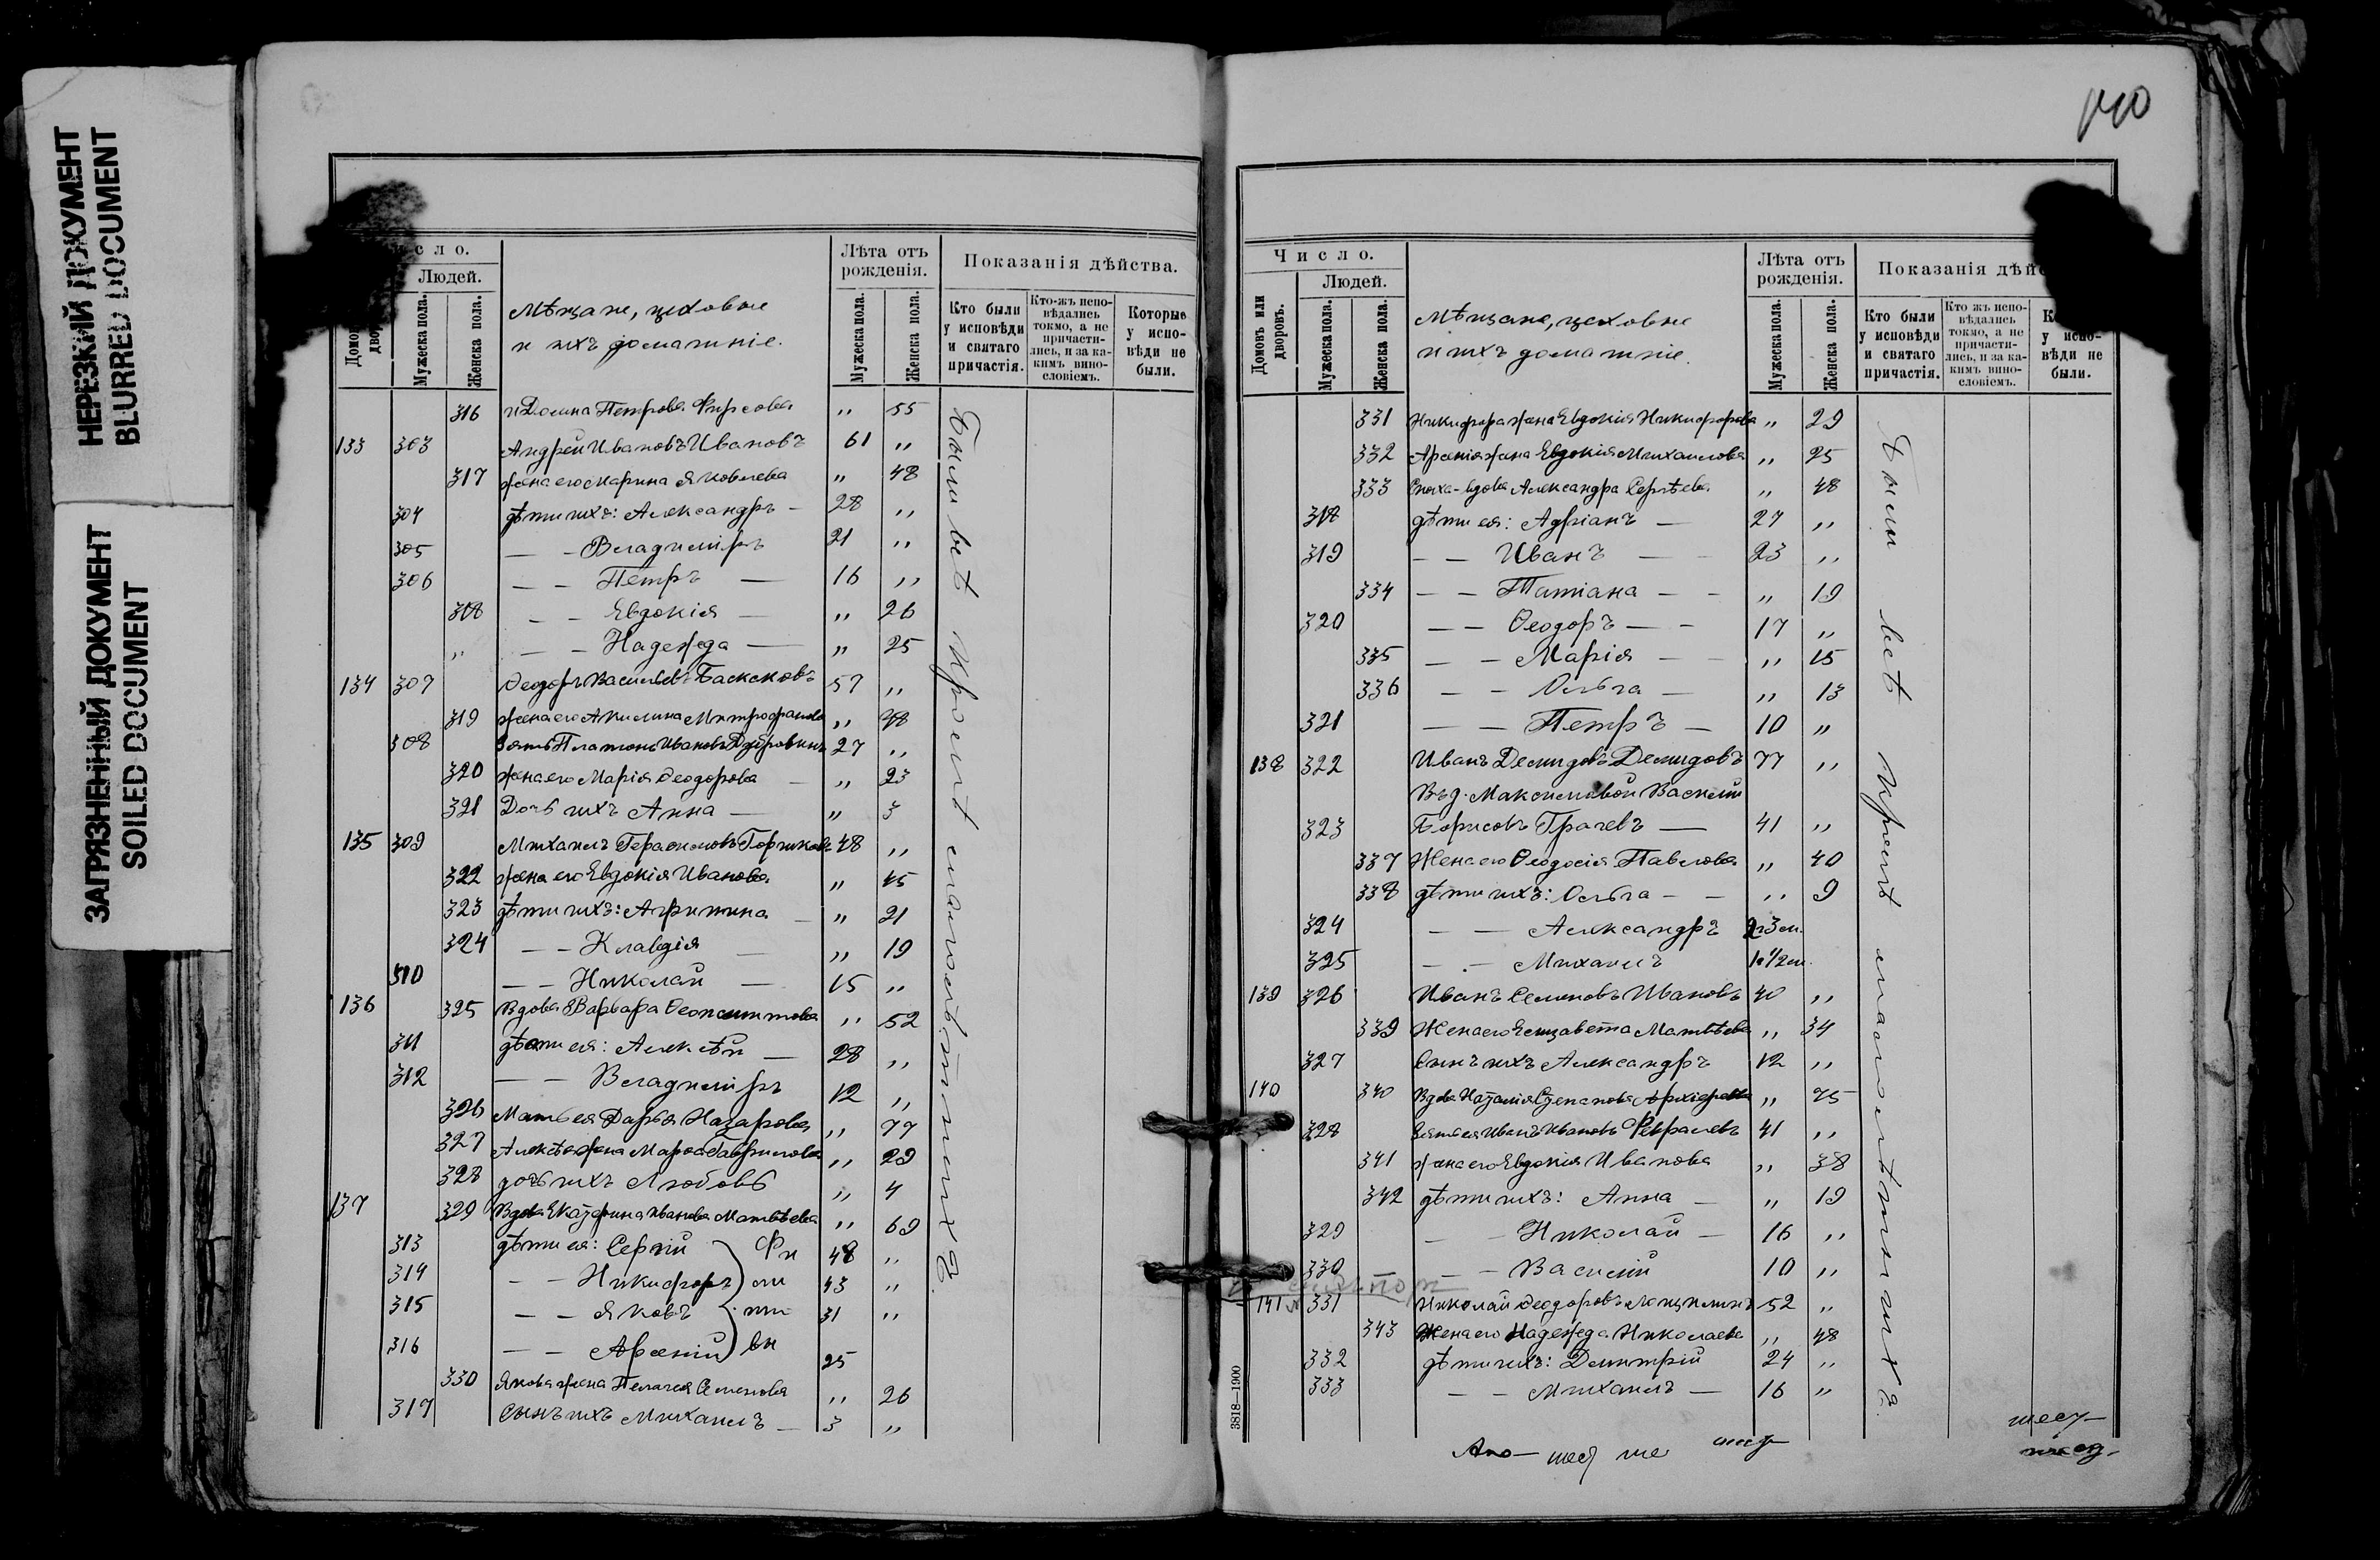 НЕРЕЗКИЙ ДОКУМЕНТ
BLURRED DOCUMENT
ЗАГРЯЗНЕННЫЙ ДОКУМЕНТ
SOILED DOCUMENT
с л о.
Людей.
Мужеска пола.
Женска пола.
Мѣщане, цеховые
и ихъ домашніе.
Лѣта отъ рожденія.
Мужеска пола.
Женска пола.
Показанія дѣйства.
Кто были у исповѣди и святаго причастія.
Кто-жъ испо-вѣдались токмо, а не причасти-лись, и за ка-кимъ вино-словіемъ.
Которые у испо-вѣди не были.
316 Петрова Фирсова „ 55
133 303 Андрей Ивановъ Ивановъ 61 „
317 жена его Марина Яковлева „ 48
304 дѣти ихъ: Александръ — 28 „
305 — — Владиміръ 21 „
306 — — Петръ — 16 „
318 — — Евдокія — „ 26
„ — — Надежда — „ 25
134 307 Ѳеодоръ Васильевъ Баскаковъ 57 „
319 жена его Акилина Митрофанова „ 48
308 Зять Платонъ Ивановъ 27 „
320 жена его Марія Ѳеодорова — „ 23
321 Дочь ихъ Анна — „ 3
135 309 Михаилъ Герасимовъ Горшковъ 48 „
322 жена его Евдокія Иванова „ 45
323 дѣти ихъ: Агрипина — „ 21
324 — — Клавдія — „ 19
310 — — Николай — 15 „
136 325 Вдова Варвара Ѳеоктистова „ 52
311 дѣти ея: Алексѣй — 28 „
312 — — Владиміръ 12 „
326 Мать ея Дарья Назарова „ 77
327 Алексѣя жена Марѳа Гаврилова „ 29
328 дочь ихъ Любовь „ 4
137 329 Вдова Екатерина Иванова Матвѣева „ 69
313 дѣти ея: Сергій 48 „
314 — — Никифоръ 43 „
315 — — Яковъ 31 „
316 — — Арсеній 25
Фи
ли
ппо
вы
330 Якова жена Пелагея Семенова „ 26
317 Сынъ ихъ Михаилъ — 3 „
Были всѣ кромѣ малолѣтнихъ.
140
Ч и с л о.
Домовъ или дворовъ.
Людей.
Мужеска пола.
Женска пола.
Мѣщане, цеховые
и ихъ домашніе.
Лѣта отъ рожденія.
Мужеска пола.
Женска пола.
Показанія дѣйс
Кто были у исповѣди и святаго причастія.
Кто жъ испо-вѣдались токмо, а не причасти-лись, и за ка-кимъ вино-словіемъ.
у испо-вѣди не были.
331 Никифора жена Евдокія Никифорова „ 29
332 Арсенія жена Евдокія Михаилова „ 25
333 Сноха-вдова Александра Сергѣева „ 48
318 дѣти ея: Адріанъ — 27 „
319 — — Иванъ — 23 „
334 — — Татіана — — „ 19
320 — — Ѳеодоръ — — 17 „
335 — — Марія — — „ 15
336 — — Ольга — „ 13
321 — — Петръ — 10 „
138 322 Иванъ Демидовъ Демидовъ 77 „
Въ д. Максимовой Василій
323 Борисовъ Грачевъ — 41 „
337 Жена его Ѳеодосія Павлова „ 40
338 дѣти ихъ: Ольга — — „ 9
324 — — Александръ
325 — — Михаилъ
139 326 Иванъ Семеновъ Ивановъ 40 „
339 Жена его Елизавета Матвѣева „ 34
327 Сынъ ихъ Александръ 12 „
140 340 Вдова Наталія Степанова „ 75
328 Зять ея Иванъ Ивановъ Февралевъ 41 „
341 жена его Евдокія Иванова „ 38
342 дѣти ихъ: Анна — „ 19
329 — — Николай — 16 „
330 — — Василій 10 „
141 331 Николай Ѳеодоровъ 52 „
343 Жена его Надежда Николаева „ 48
332 дѣти ихъ: Димитрій 24 „
333 — — Михаилъ — 16 „
Были всѣ кромѣ малолѣтнихъ.
3818—1900